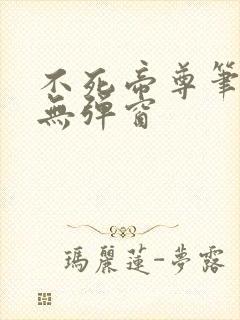 不死帝尊筆
無彈窗
瑪麗蓮-夢露